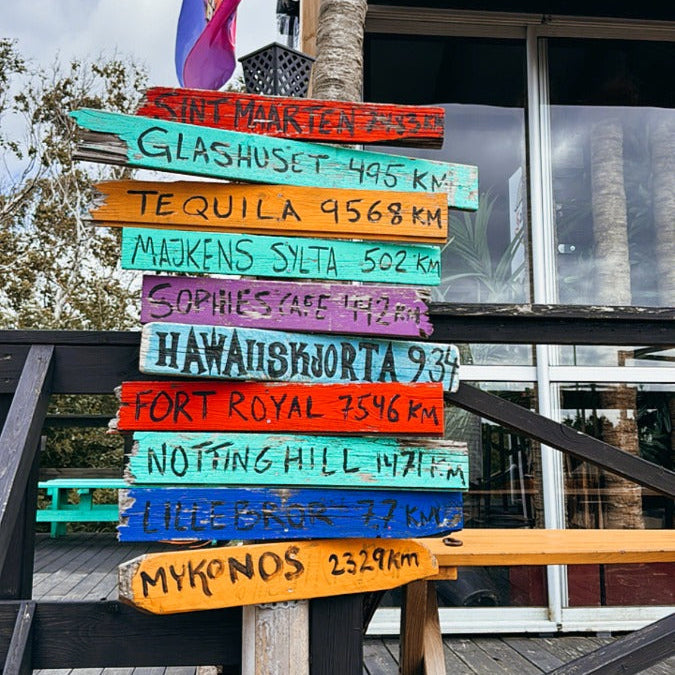 SINT MAARTEN 7483 KM
GLASHUSET 495 KM
TEQUILA 9568 KM
MAJKENS SYLTA 502 KM
SOPHIES CAFE 442 KM
HAWAIISKJORTA 934
FORT ROYAL 7546 KM
NOTTING HILL 1471 KM
LILLEBROR 7,7 KM
MYKONOS 2329 KM